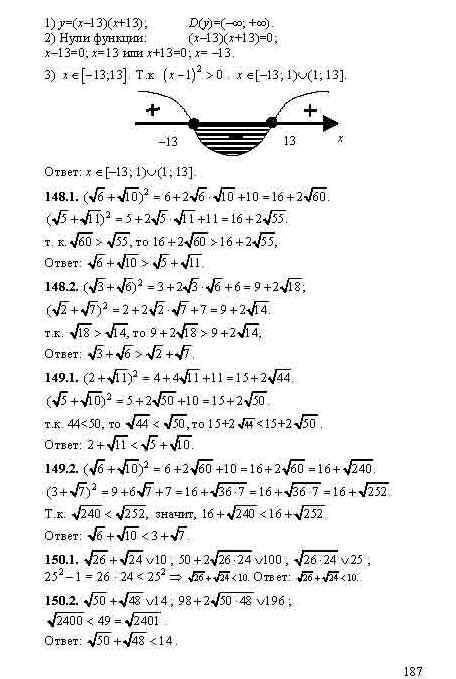 1) y=(x–13)(x+13); D(y)=(–∞; +∞).
2) Нули функции: (x–13)(x+13)=0;
x–13=0; x=13 или x+13=0; x= –13.
3) x∈[–13;13]. Т.к. (x–1)² > 0. x∈[–13; 1)∪(1; 13].
+ – +
–13 13 x
Ответ: x∈[–13; 1)∪(1; 13].
148.1. (√6 + √10)² = 6 + 2√6 · √10 + 10 = 16 + 2√60.
(√5 + √11)² = 5 + 2√5 · √11 + 11 = 16 + 2√55.
т. к. √60 > √55, то 16 + 2√60 > 16 + 2√55,
Ответ: √6 + √10 > √5 + √11.
148.2. (√3 + √6)² = 3 + 2√3 · √6 + 6 = 9 + 2√18;
(√2 + √7)² = 2 + 2√2 · √7 + 7 = 9 + 2√14.
т.к. √18 > √14, то 9 + 2√18 > 9 + 2√14,
Ответ: √3 + √6 > √2 + √7.
149.1. (2 + √11)² = 4 + 4√11 + 11 = 15 + 2√44.
(√5 + √10)² = 5 + 2√50 + 10 = 15 + 2√50.
т.к. 44<50, то √44 < √50, то 15+2√44 <15+2√50.
Ответ: 2 + √11 < √5 + √10.
149.2. (√6 + √10)² = 6 + 2√60 + 10 = 16 + 2√60 = 16 + √240.
(3 + √7)² = 9 + 6√7 + 7 = 16 + √36·7 = 16 + √36·7 = 16 + √252.
Т.к. √240 < √252, значит, 16 + √240 < 16 + √252.
Ответ: √6 + √10 < 3 + √7.
150.1. √26 + √24 ∨ 10; 50 + 2√26·24 ∨ 100; √26·24 ∨ 25;
25² – 1 = 26 · 24 < 25² ⇒ √26 + √24 < 10. Ответ: √26 + √24 < 10.
150.2. √50 + √48 ∨ 14; 98 + 2√50·48 ∨ 196;
√2400 < 49 = √2401.
Ответ: √50 + √48 < 14.
187